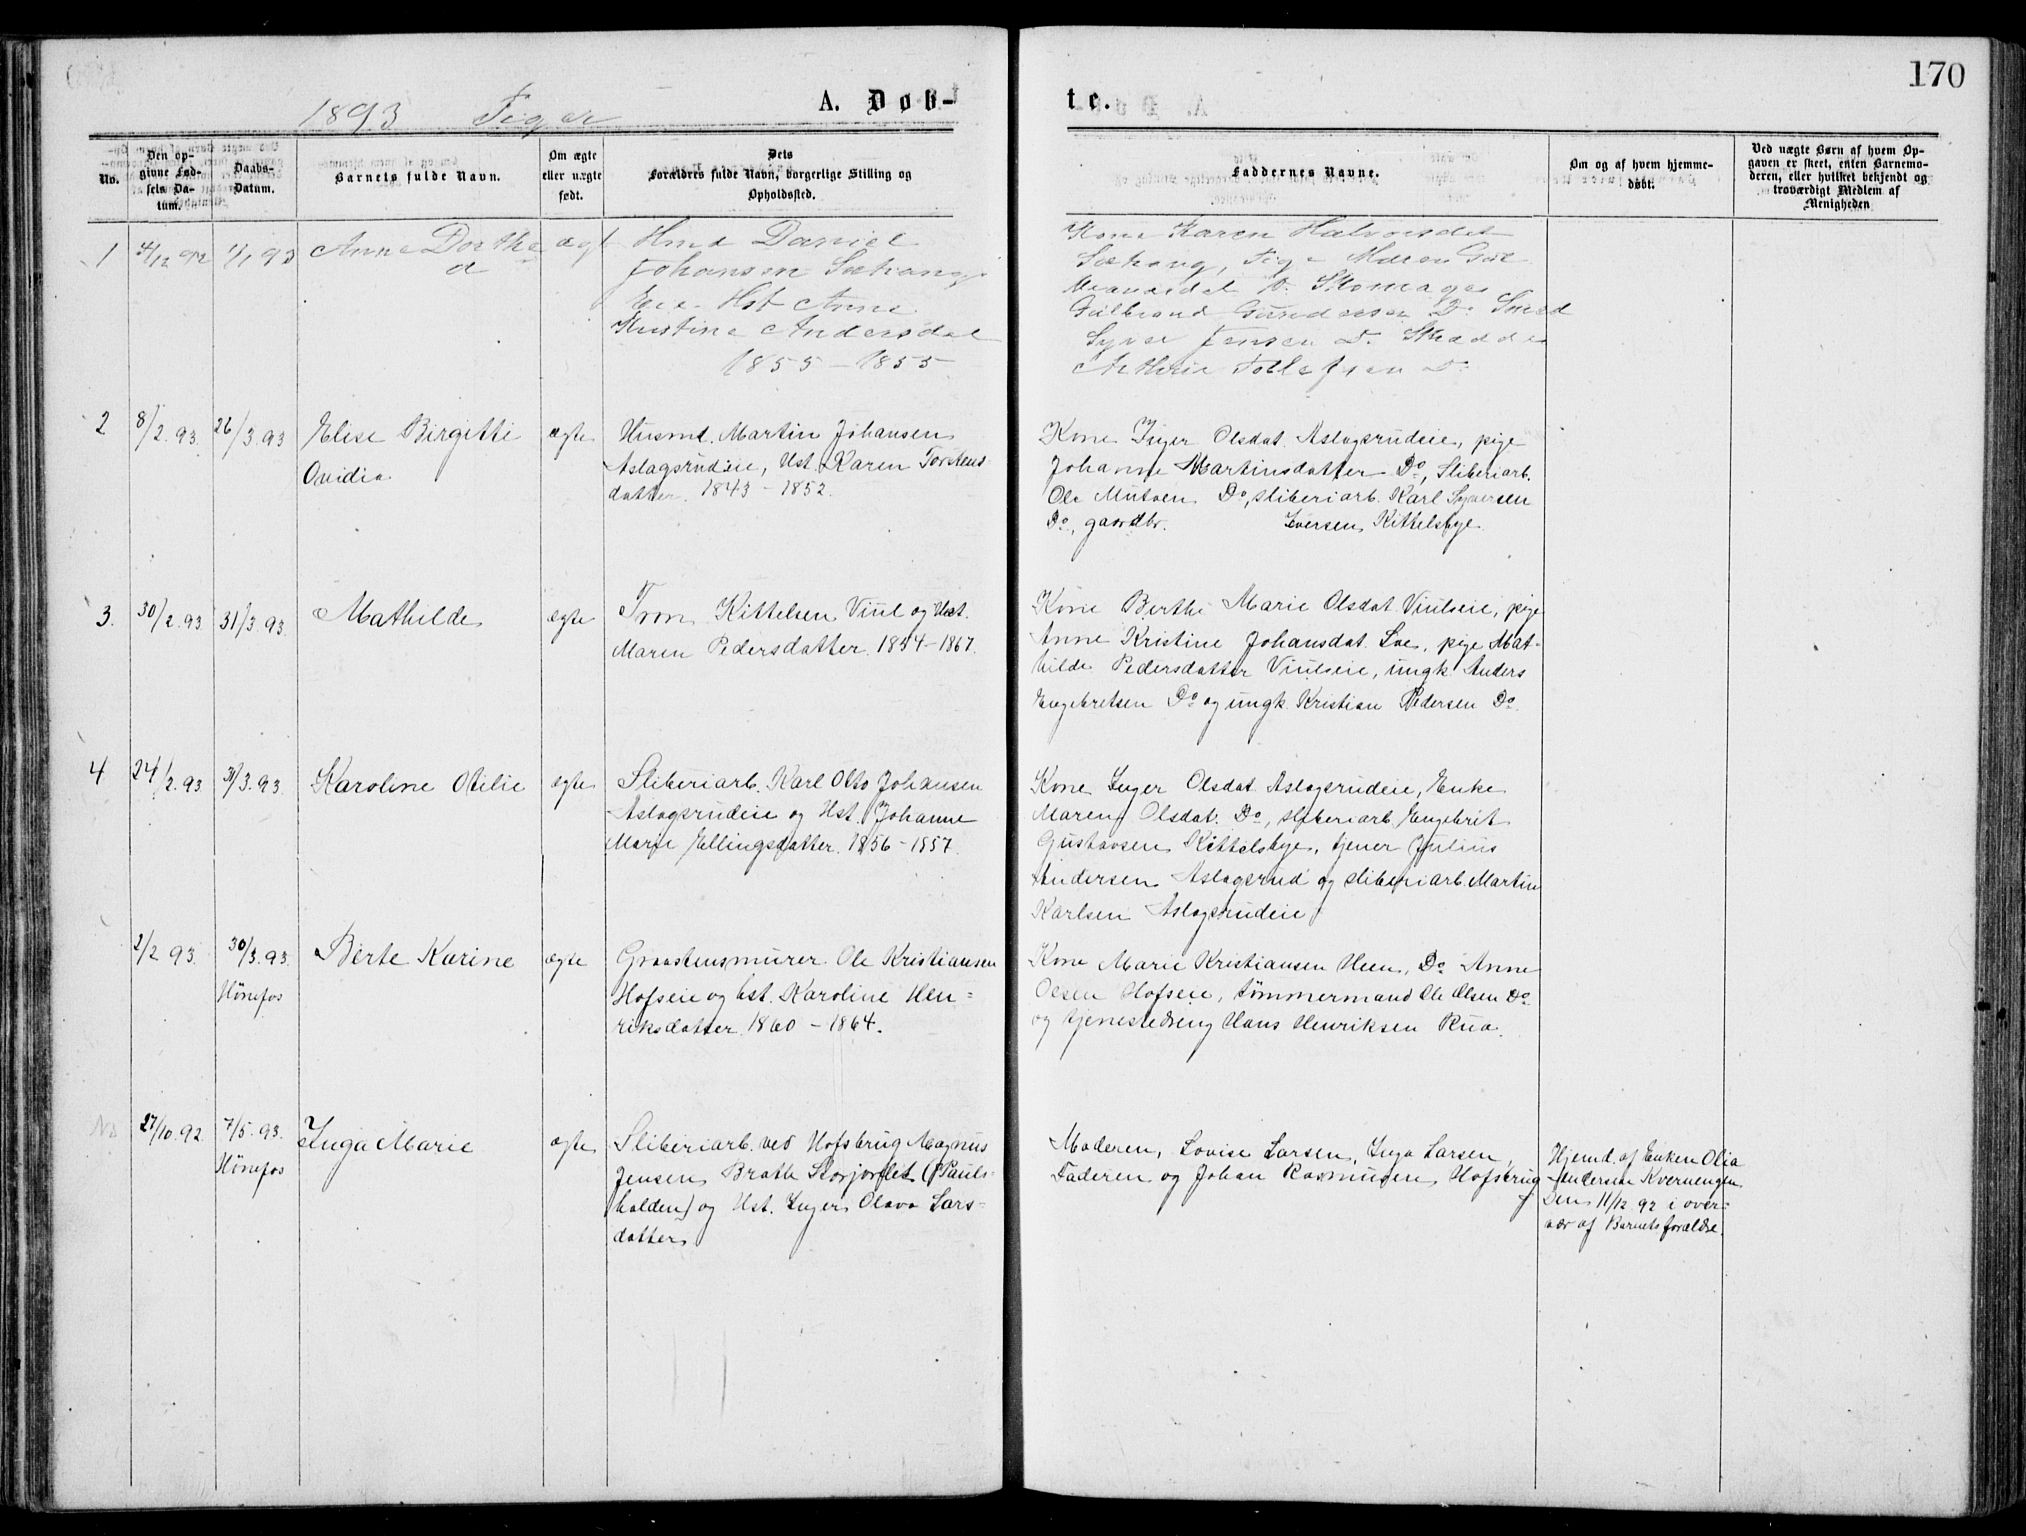 170
1893 Piger
A. Døb-
te.
No.
Den op-
givne Fød-
sels Da-
tum.
Daabs-
Datum.
Barnets fulde Navn.
Om ægte
eller uægte
født.
Dets
Forældres fulde Navn, borgerlige Stilling og
Opholdssted.
Faddernes Navne.
Om og af hvem hjemme-
døbt.
Ved uægte Børn af hvem Op-
gaven er skeet, enten Barnemo-
deren, eller hvilket bekjendt og
troværdigt Medlem af
Menigheden
1
4/12 92
1/1 93
Anne Dorthe
a
ægt
Hmd Daniel
Johansen Sæhaug
Eie Hst Anne
Kristine Andersdat
1855 - 1855
Kone Karen Halvorsdat
Sæhaug, Pige Maren Gul
D. Skomager
Gulbrand Gundersen D. Smed
Syver Jensen D. Skradder
Tollefsen D.
2
8/2.93.
26/3.93
Elise Birgitte
Ovidia
ægte
Husmd. Martin Johansen
Aslagsrudeie, Hst. Karen Torstens-
datter. 1843 - 1852.
Kone Inger Olsdat. Aslagsrudeie, pige
Johanne Martinsdatter Do, Sliberiarb.
Ole Do, sliberiarb. Karl Syversen
Do, gaardbr. Iversen Kittelsbye.
3.
30/2.93
31/3.93.
Mathilde
ægte
Tron Kittelsen Viul og Hst.
Maren Pedersdatter. 1854 - 1867.
Kone Berthe Marie Olsdat. Viulseie, pige
Anne Kristine Johansdat. Loe, pige Mat-
hilde Pedersdatter Viulseie, ungk. Anders
Engebretsen Do og ungk. Kristian Pedersen Do.
4
24/2.93
31/3.93.
Karoline Otilie
ægte
Sliberiarb. Karl Otto Johansen
Aslagsrudeie og Hst. Johanne
Marie Ellingsdatter. 1856 - 1857.
Kone Inger Olsdat. Aslagsrudeie, Enke
Maren Olsdat. Do, sliberiarb. Engebrit
Gustavsen Kittelsbye, tjener Julius
Andersen Aslagsrud og sliberiarb. Martin
Karlsen Aslagsrudeie
2/2 93.
30/3.93.
Hönefos
Berte Karine
ægte
Graastensmurer Ole Kristiansen
Hofseie og hst. Karoline Hen=
riksdatter. 1860 - 1864.
Kone Marie Kristiansen Heen, Do Anne
Olsen Hofseie, tömmermand Ole Olsen Do
og tjenestedreng Hans Henriksen Rua.
27/10.92
7/5.93.
Hönefos
Inga Marie
ægte
Sliberiarb. ved Hofsbrug Magnus
Jensen Brathe Storjordet (Pauls-
holden) og Hst. Inger Olava Lars-
datter
Moderen, Lovise Larsen, Inga Larsen,
Faderen og Johan Rasmusen Hofsbrug
Hjemd. af Enken Olia
Andersen Kvernengen
Den 11/12 92 i over-
vær af Barnets forældre.